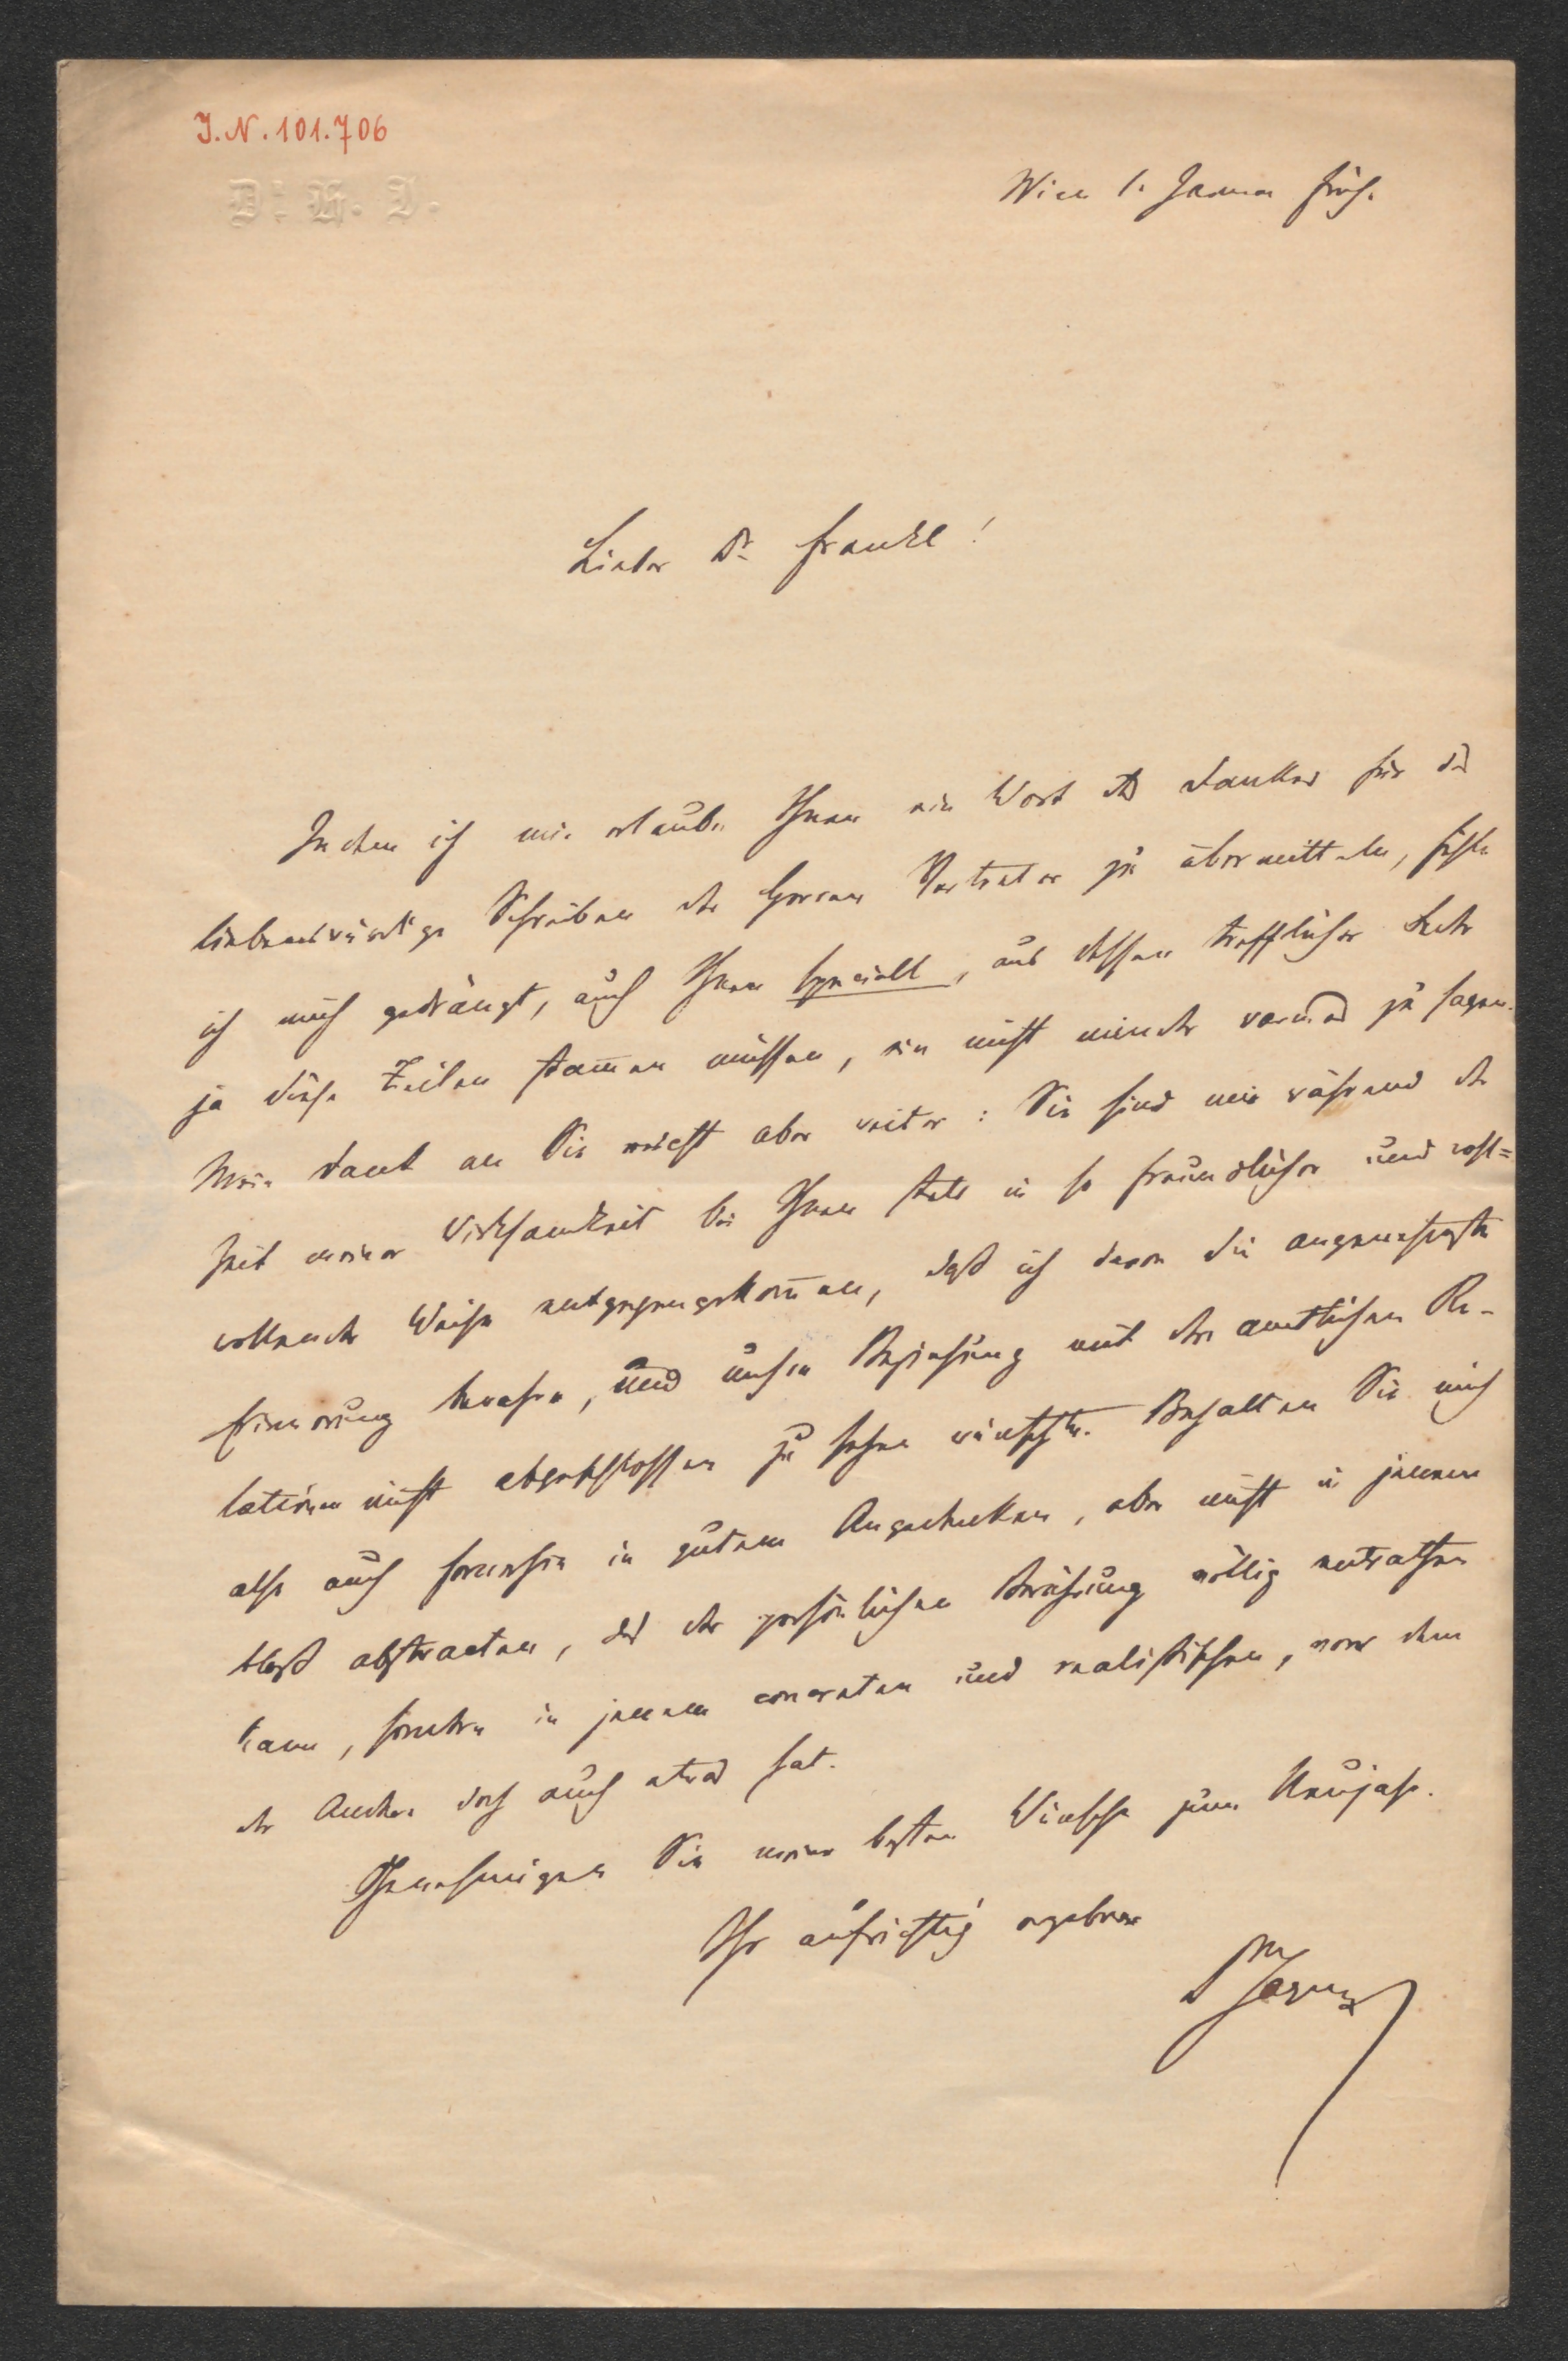 J.N. 101.706
Dr. R. J.
Wien 1. Januar früh.
Lieber Dr. Frankl!
Indem ich mir erlaube Ihnen ein Wort des Dankes für das
liebenswürdige Schreiben der Herren Vertreter zu übermitteln, fühle
ich mich gedrängt, auch Ihnen speciell, aus dessen trefflicher Feder
ja diese Zeilen stammen müssen, ein nicht minder warmes zu sagen.
Mein Dank an Sie reicht aber weiter: Sie sind mir während der
Zeit meiner Wirksamkeit bei Ihnen stets in so freundlicher und wohl=
wollender Weise entgegengekommen, daß ich davon die angenehmste
Erinnerung bewahre, und unsere Beziehung mit der amtlichen Re-
lation nicht abgeschlossen zu sehen wünschte. Behalten Sie mich
also auch fernerhin in gutem Angedenken, aber nicht in jenem
bloß abstracten, das der persönlichen Berührung völlig entrathen
kann, sondern in jenem concreten und realistischen, von dem
der Andere doch auch etwas hat.
Genehmigen Sie meine besten Wünsche zum Neujahr.
Ihr aufrichtig ergebener